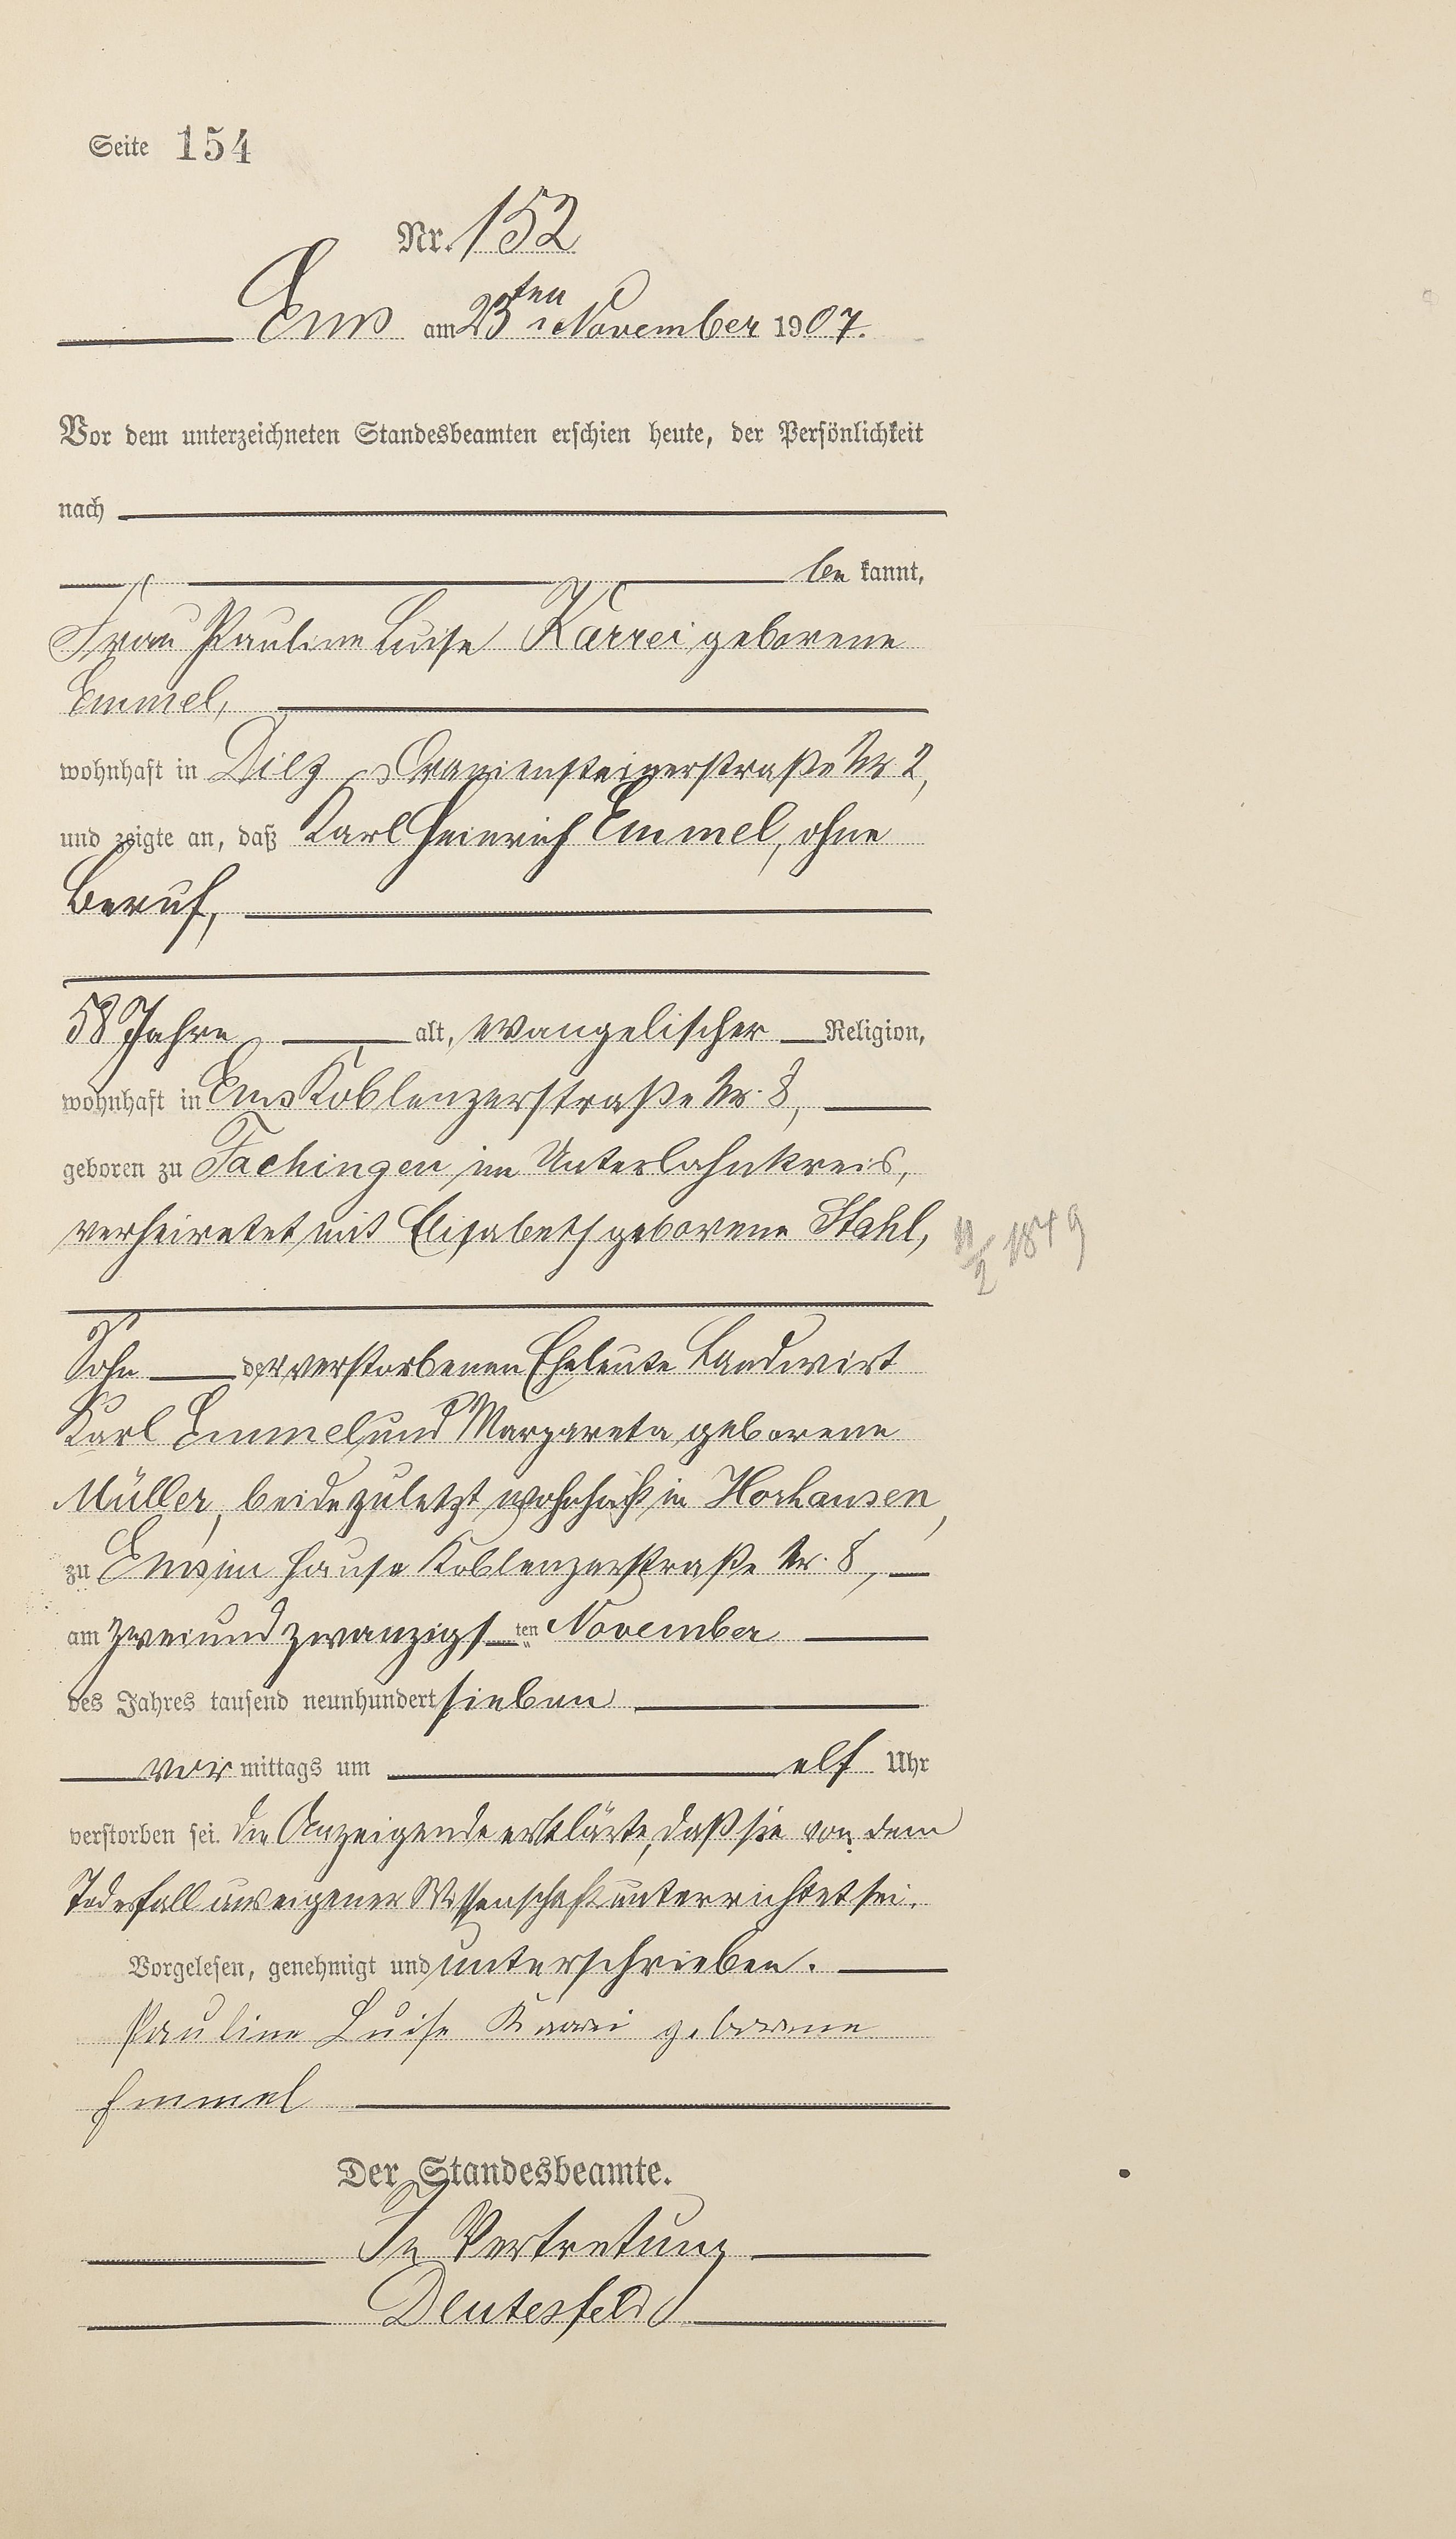 Seite 154
Nr. 152
Ems am 23ten November 1907.
Vor dem unterzeichneten Standesbeamten erschien heute, der Persönlichkeit
nach
be kannt,
Frau Pauline Luise Karrei geborene
Emmel,
wohnhaft in Diez, Oraniensteinerstraße Nr 2,
und zeigte an, daß Karl Heinrich Emmel, ohne
Beruf,
58 Jahre alt, evangelischer Religion,
wohnhaft in Ems Koblenzerstraße Nr. 8,
geboren zu Fachingen im Unterlahnkreis,
verheiratet mit Elisabeth geborene Stahl,
11/2 1849
Sohn der verstorbenen Eheleute Landwirt
Karl Emmel und Margareta geborene
Müller, beide zuletzt wohnhaft in Horhausen,
zu Ems im Hause Koblenzerstraße Nr. 8,
am zweiundzwanzigsten November
des Jahres tausend neunhundert sieben
vor mittags um elf Uhr
verstorben sei. Die Anzeigende erklärte, daß sie von dem
Todesfall aus eigener Wissenschaft unterrichtet sei.
Vorgelesen, genehmigt und unterschrieben.
Pauline Luise Karrei geborene
Emmel
Der Standesbeamte.
In Vertretung
Deutesfeld